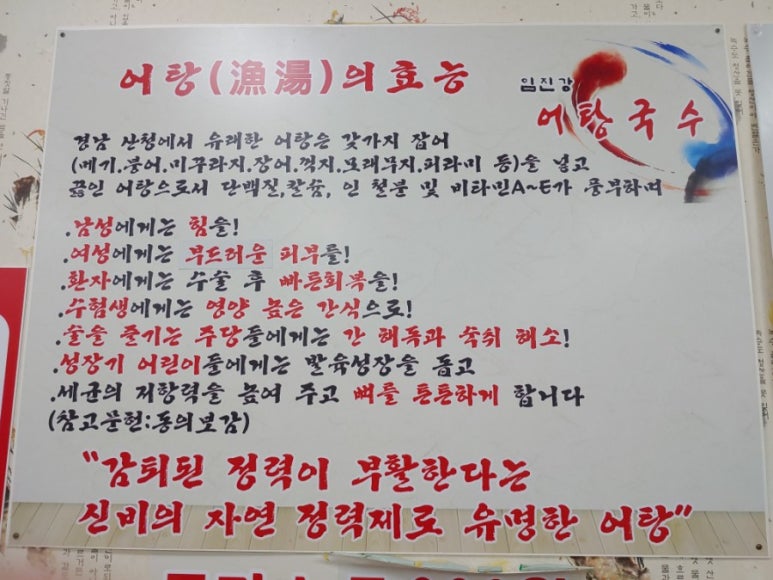 어탕(漁湯)의효능
임진강
어탕국수
경남 산청에서 유래한 어탕은 갖가지 잡어
(메기.붕어.미꾸라지.장어.꺽지.모래무지.피라미 등)을 넣고
끓인 어탕으로서 단백질,칼슘, 인 철분 및 비타민A~E가 풍부하며
.남성에게는 힘을!
.여성에게는 부드러운 피부를!
.환자에게는 수술 후 빠른회복을!
.수험생에게는 영양 높은 간식으로!
.술을 즐기는 주당들에게는 간 해독과 숙취 해소!
.성장기 어린이들에게는 발육성장을 돕고
.세균의 저항력을 높여 주고 뼈를 튼튼하게 합니다
(참고문헌:동의보감)
"감퇴된 정력이 부활한다는
신비의 자연 정력제로 유명한 어탕"